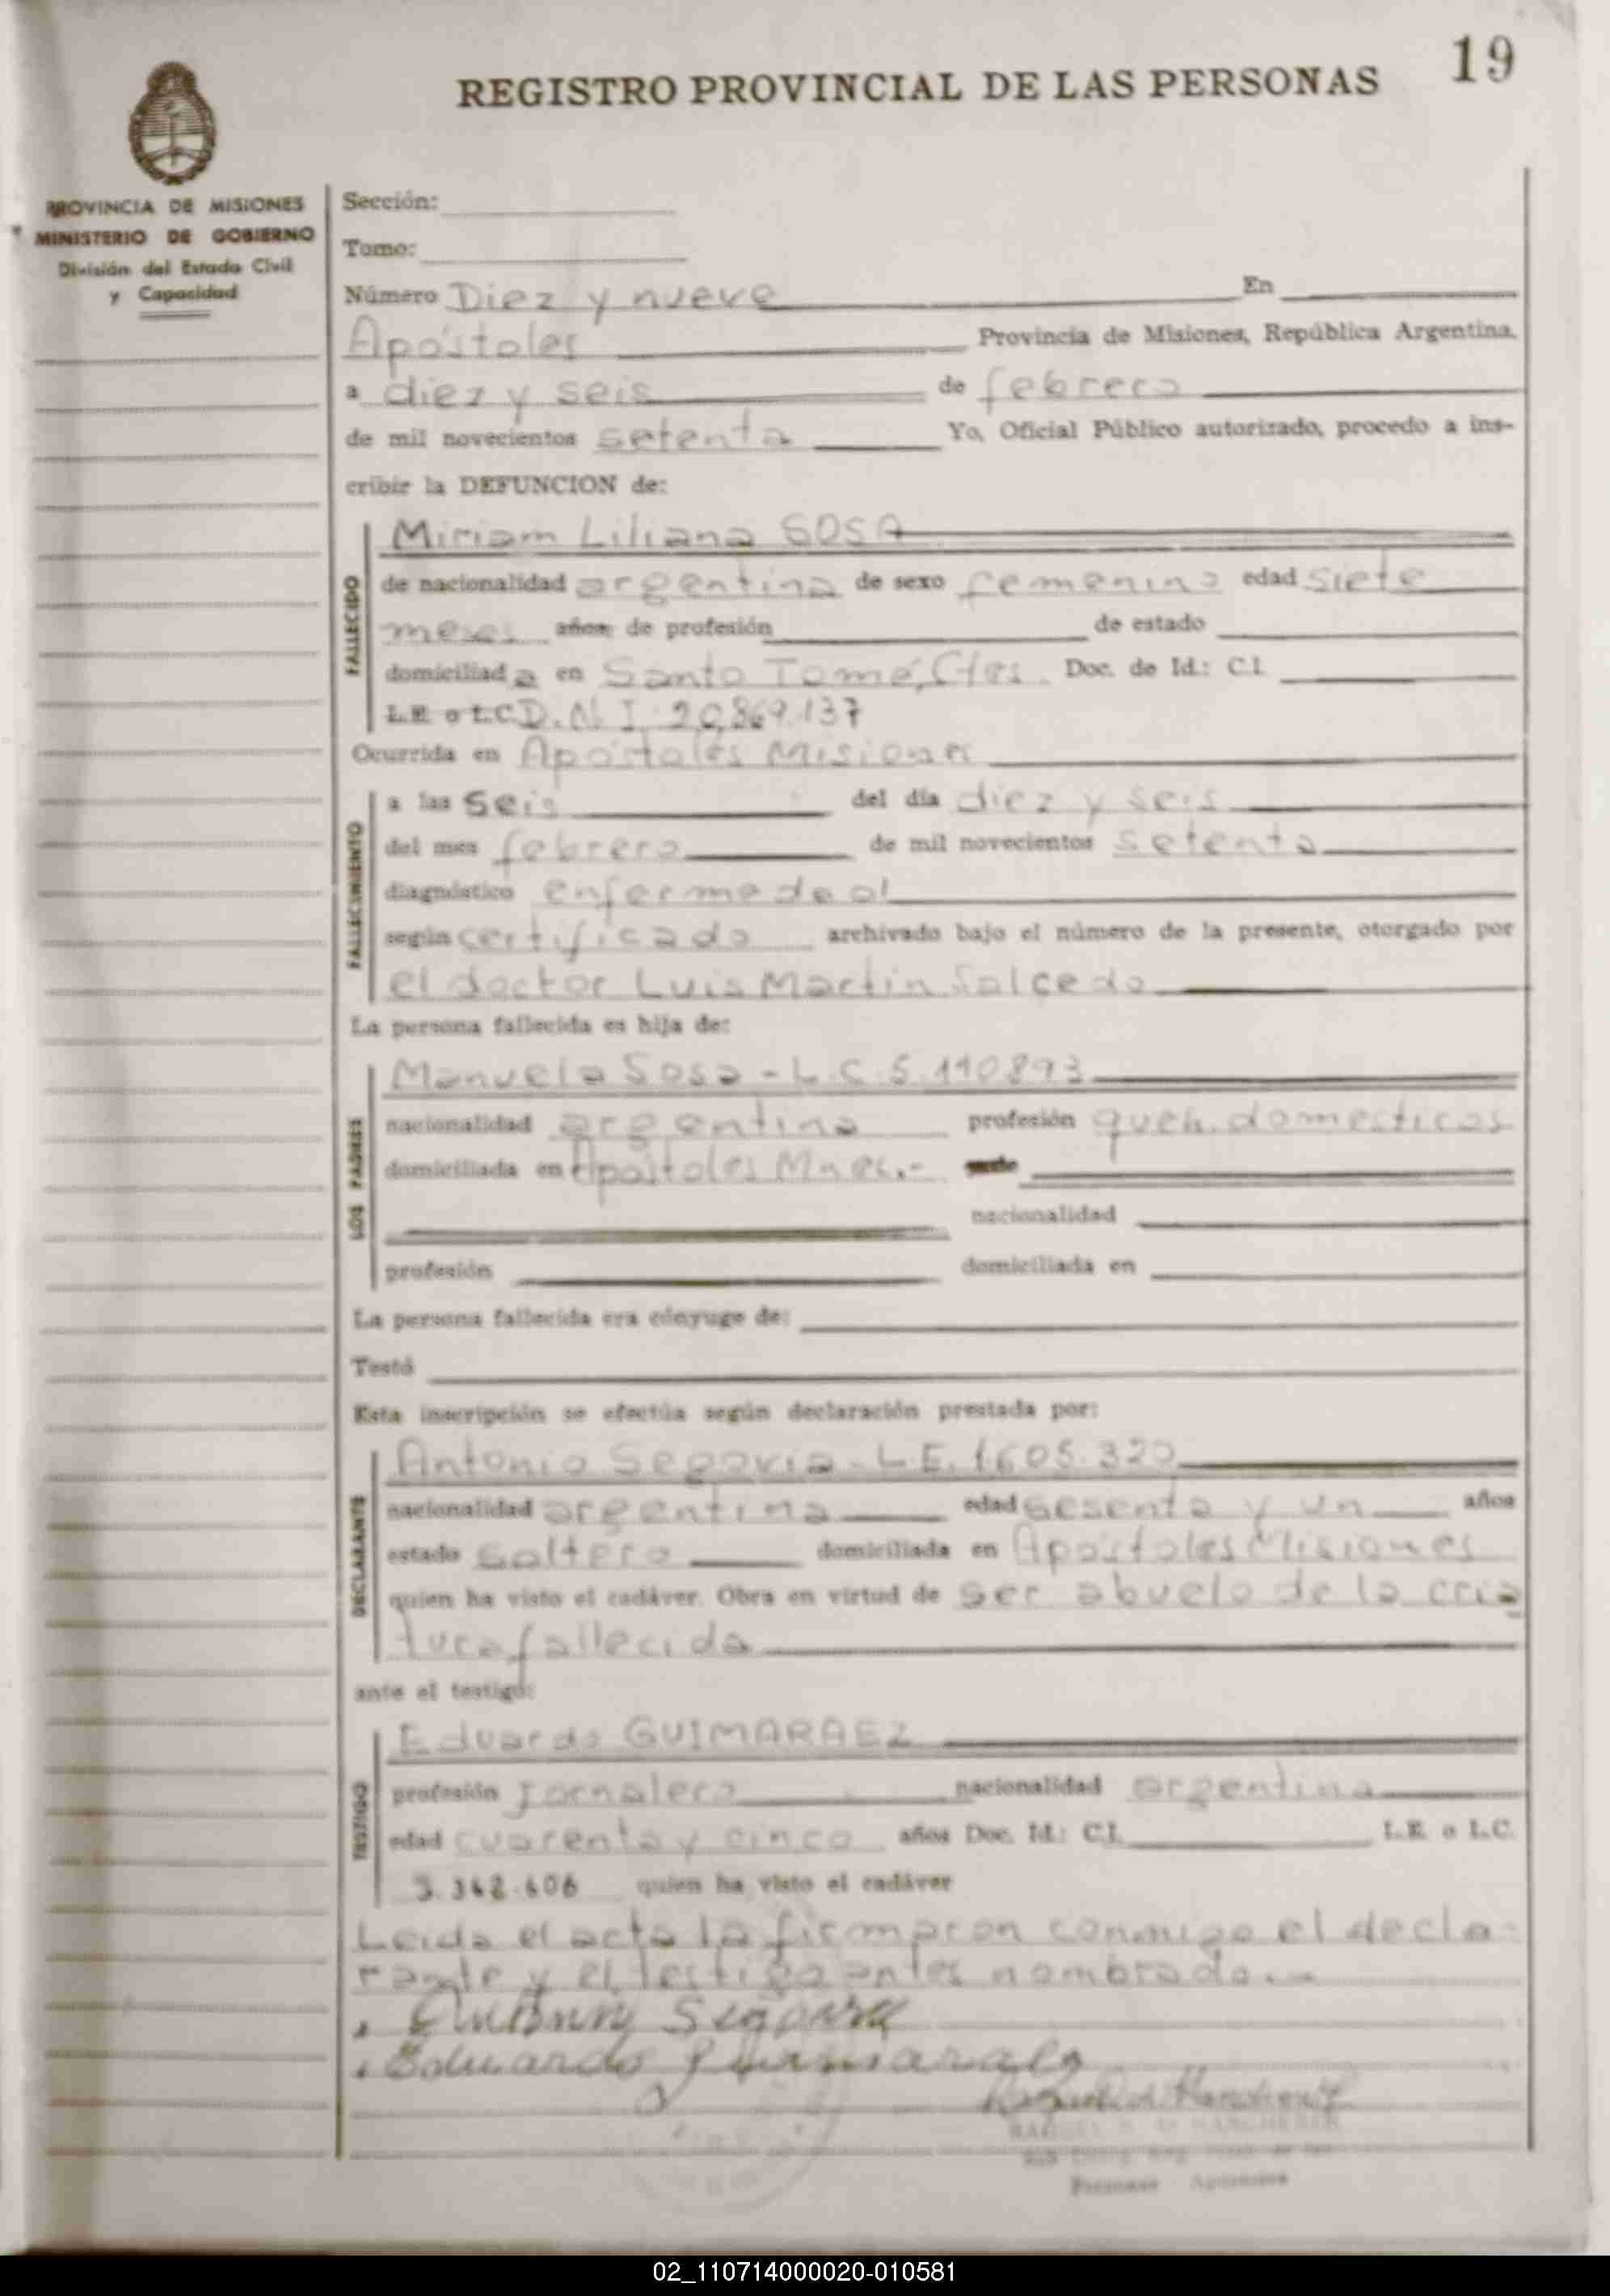 19
REGISTRO PROVINCIAL DE LAS PERSONAS
PROVINCIA DE MISIONES
MINISTERIO DE GOBIERNO
División del Estado Civil
y Capacidad
Sección:
Tomo:
Número Diez y nueve En
Apóstoles Provincia de Misiones, República Argentina,
a diez y seis de febrero
de mil novecientos setenta Yo, Oficial Público autorizado, procedo a ins-
cribir la DEFUNCION de:
FALLECIDO
Miriam Liliana SOSA
de nacionalidad argentina de sexo femenino edad siete
meses años, de profesión de estado
domiciliad a en Santo Tomé, Ctes. Doc. de Id.: C.I.
L.E. o L.C. D.N.I. 20,869.137
Ocurrida en Apóstoles Misiones
FALLECIMIENTO
a las seis del día diez y seis
del mes febrero de mil novecientos setenta
diagnóstico enfermedad
según certificado archivado bajo el número de la presente, otorgado por
el doctor Luis Martin Salcedo
La persona fallecida es hija de:
LOS PADRES
Manuela Sosa - L.C. 5.110893
nacionalidad argentina profesión queh. domesticos
domiciliada en Apóstoles Mnes.-
nacionalidad
profesión domiciliada en
La persona fallecida era cónyuge de:
Testó
Esta inscripción se efectúa según declaración prestada por:
DECLARANTE
Antonio Segovia - L.E. 1.605.320
nacionalidad argentina edad sesenta y un años
estado soltero domiciliada en Apóstoles Misiones
quien ha visto el cadáver. Obra en virtud de ser abuelo de la cria
tura fallecida
ante el testigo:
TESTIGO
Eduardo GUIMARAEZ
profesión Jornalero nacionalidad argentina
edad cuarenta y cinco años Doc. Id.: C.I. L.E. o L.C.
3.362.606 quien ha visto el cadáver
Leida el acta la firmaron conmigo el decla-
rante y el testigo antes nombrado.-
Eduardo
02_110714000020-010581